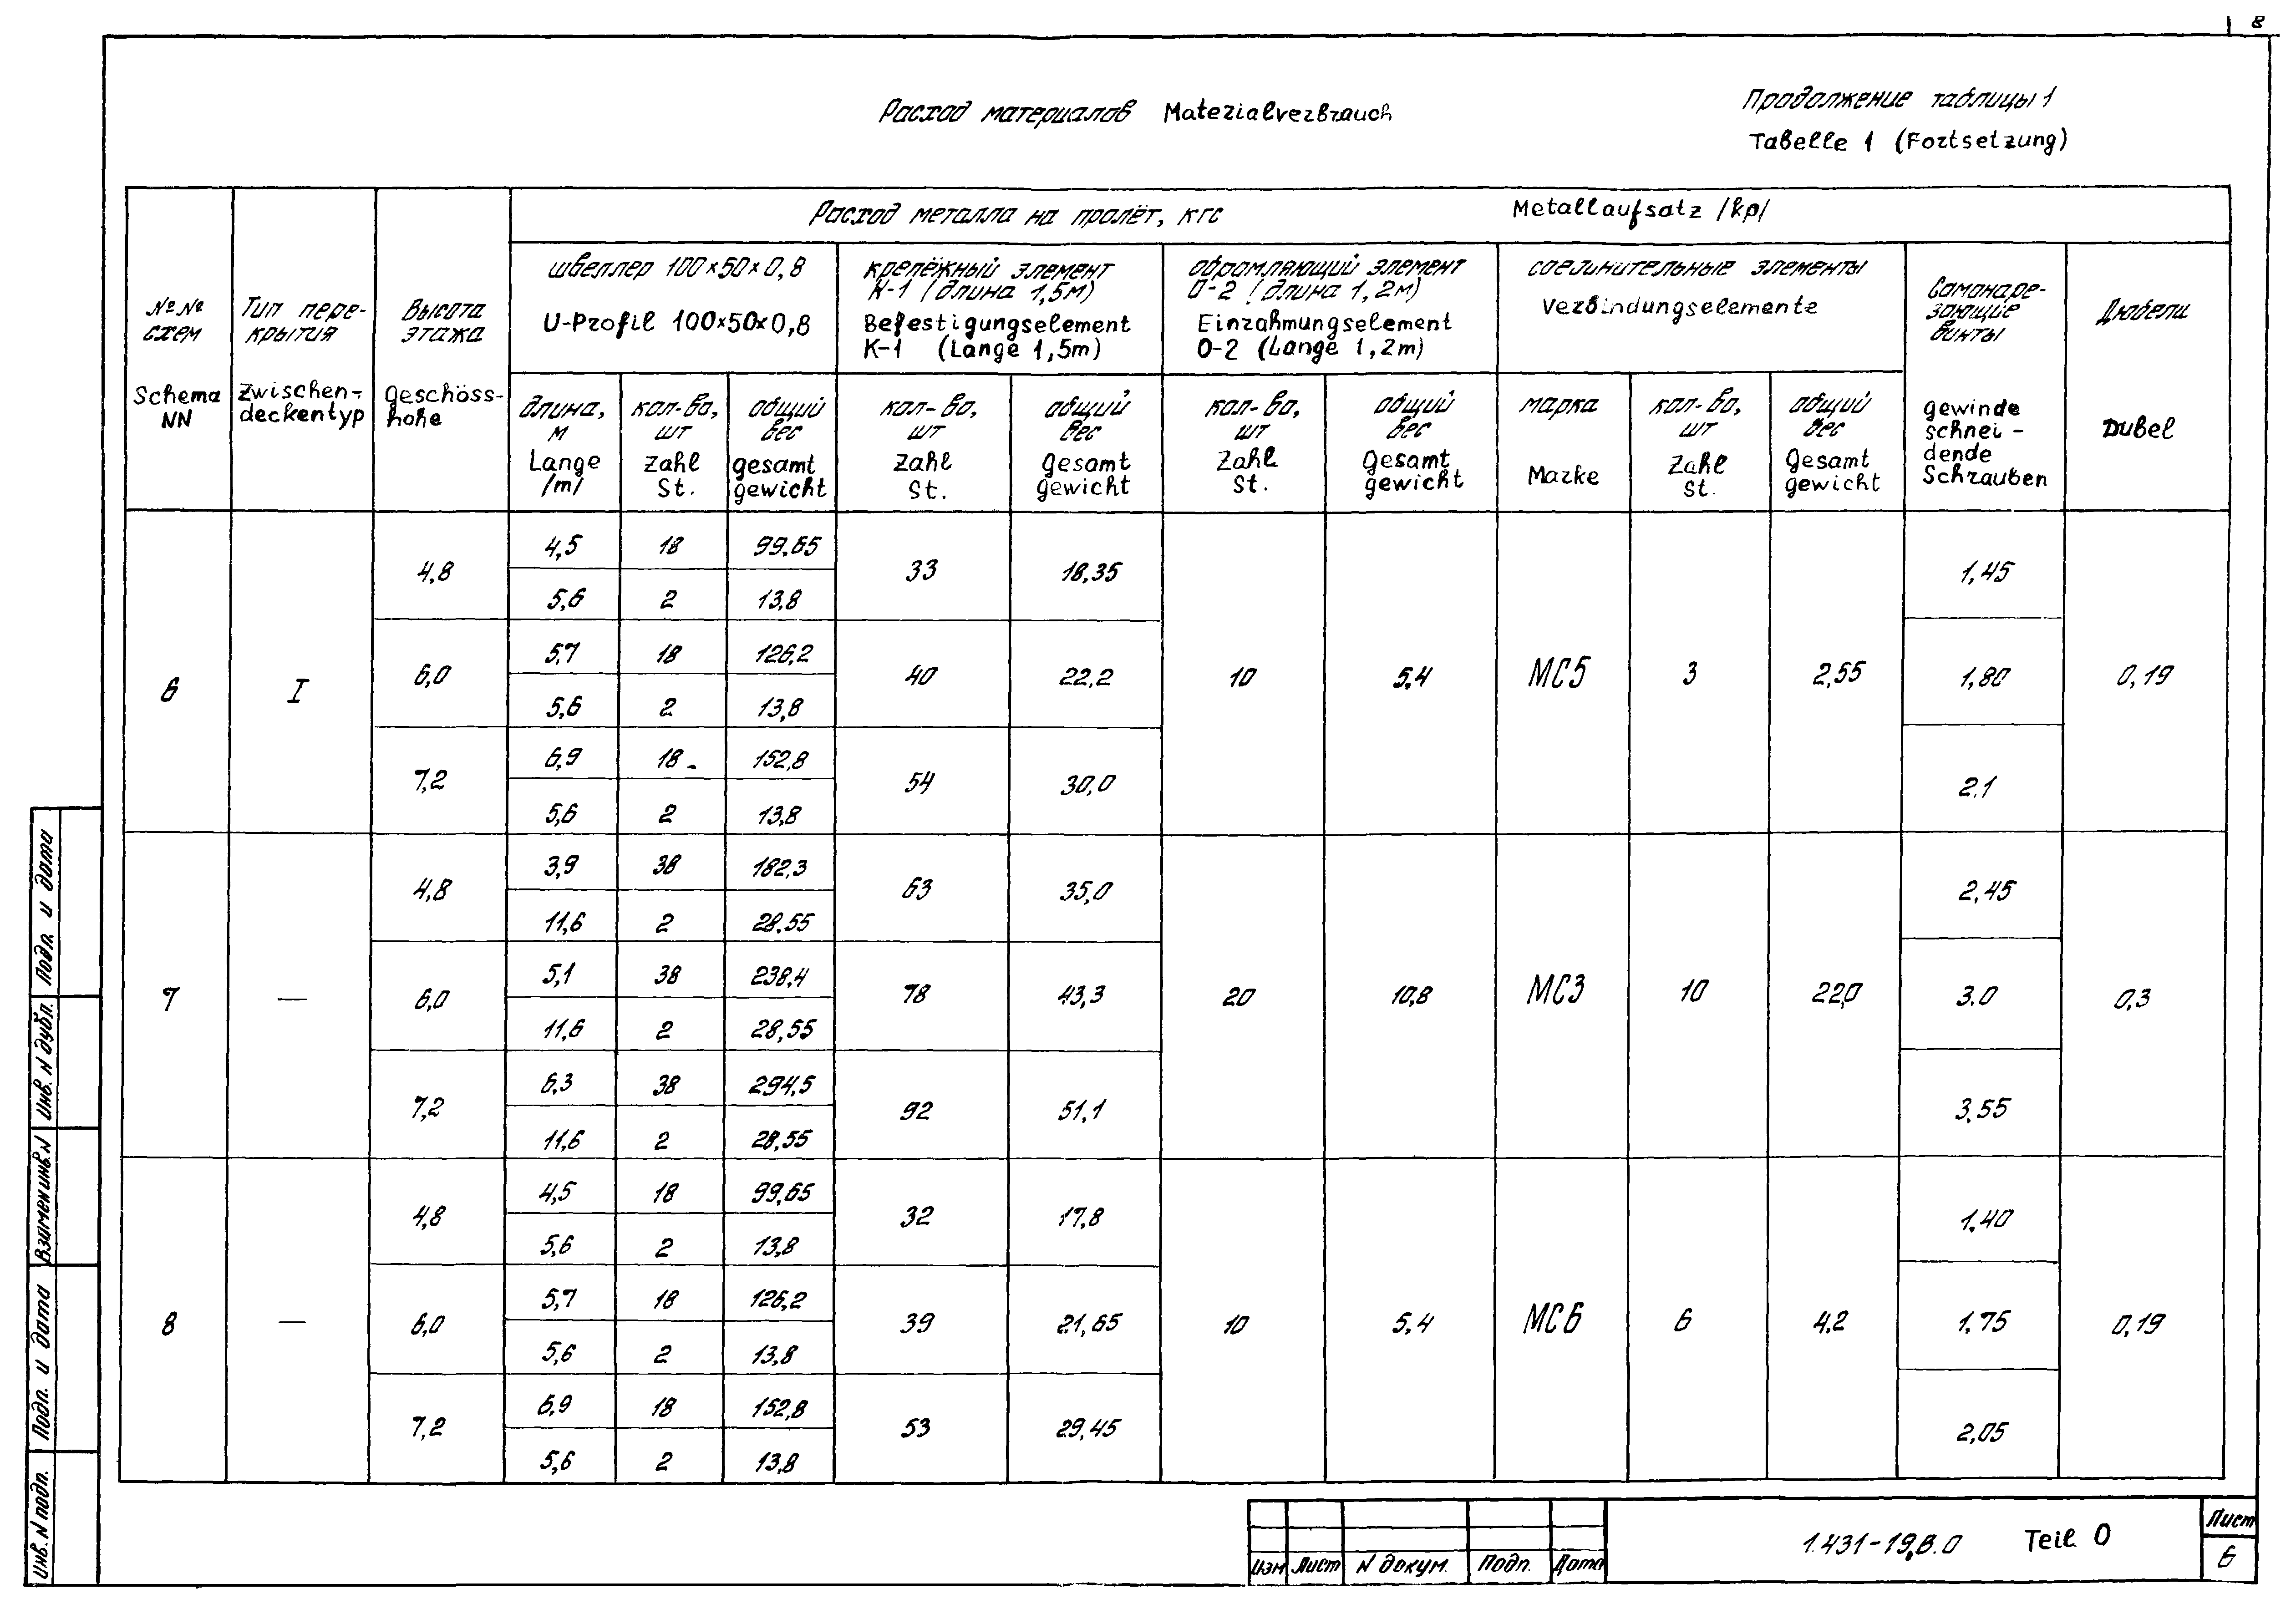 8
Расход материалов Materialverbrauch
Продолжение таблицы 1
Tabelle 1 (Fortsetzung)
Расход металла на пролёт, кгс Metallaufsatz /kp/
№№ схем
Schema NN
Тип пере-
крытия
Zwischen-
deckentyp
Высота
этажа
Geschöss-
hohe
швеллер 100×50×0,8
U-Profil 100×50×0,8
крепёжный элемент
К-1 (длина 1,5м)
Befestigungselement
K-1 (Lange 1,5m)
обрамляющий элемент
О-2 (длина 1,2м)
Einrahmungselement
O-2 (Lange 1,2m)
соединительные элементы
Verbindungselemente
Самонаре-
зающие
винты
gewinde
schnei-
dende
Schrauben
Дюбели
Dubel
длина, м Lange /m/
кол-во, шт Zahl St.
общий вес gesamt gewicht
кол-во, шт Zahl St.
общий вес gesamt gewicht
кол-во, шт Zahl St.
общий вес gesamt gewicht
марка Marke
кол-во, шт Zahl St.
общий вес gesamt gewicht
6 I 4,8 4,5 18 99,65 33 18,35 1,45
5,6 2 13,8
6,0 5,7 18 126,2 40 22,2 10 5,4 МС5 3 2,55 1,80 0,19
5,6 2 13,8
7,2 6,9 18 152,8 54 30,0 2,1
5,6 2 13,8
7 — 4,8 3,9 38 182,3 63 35,0 2,45
11,6 2 28,55
6,0 5,1 38 238,4 78 43,3 20 10,8 МС3 10 22,0 3,0 0,3
11,6 2 28,55
7,2 6,3 38 294,5 92 51,1 3,55
11,6 2 28,55
8 — 4,8 4,5 18 99,65 32 17,8 1,40
5,6 2 13,8
6,0 5,7 18 126,2 39 21,65 10 5,4 МС6 6 4,2 1,75 0,19
5,6 2 13,8
7,2 6,9 18 152,8 53 29,45 2,05
5,6 2 13,8
Подп. и дата
Инв. N дубл.
Взамен инв. N
Подп. и дата
Инв. N подл.
Изм Лист N докум. Подп. Дата
1.431-19,в.0 Teil 0
Лист
6